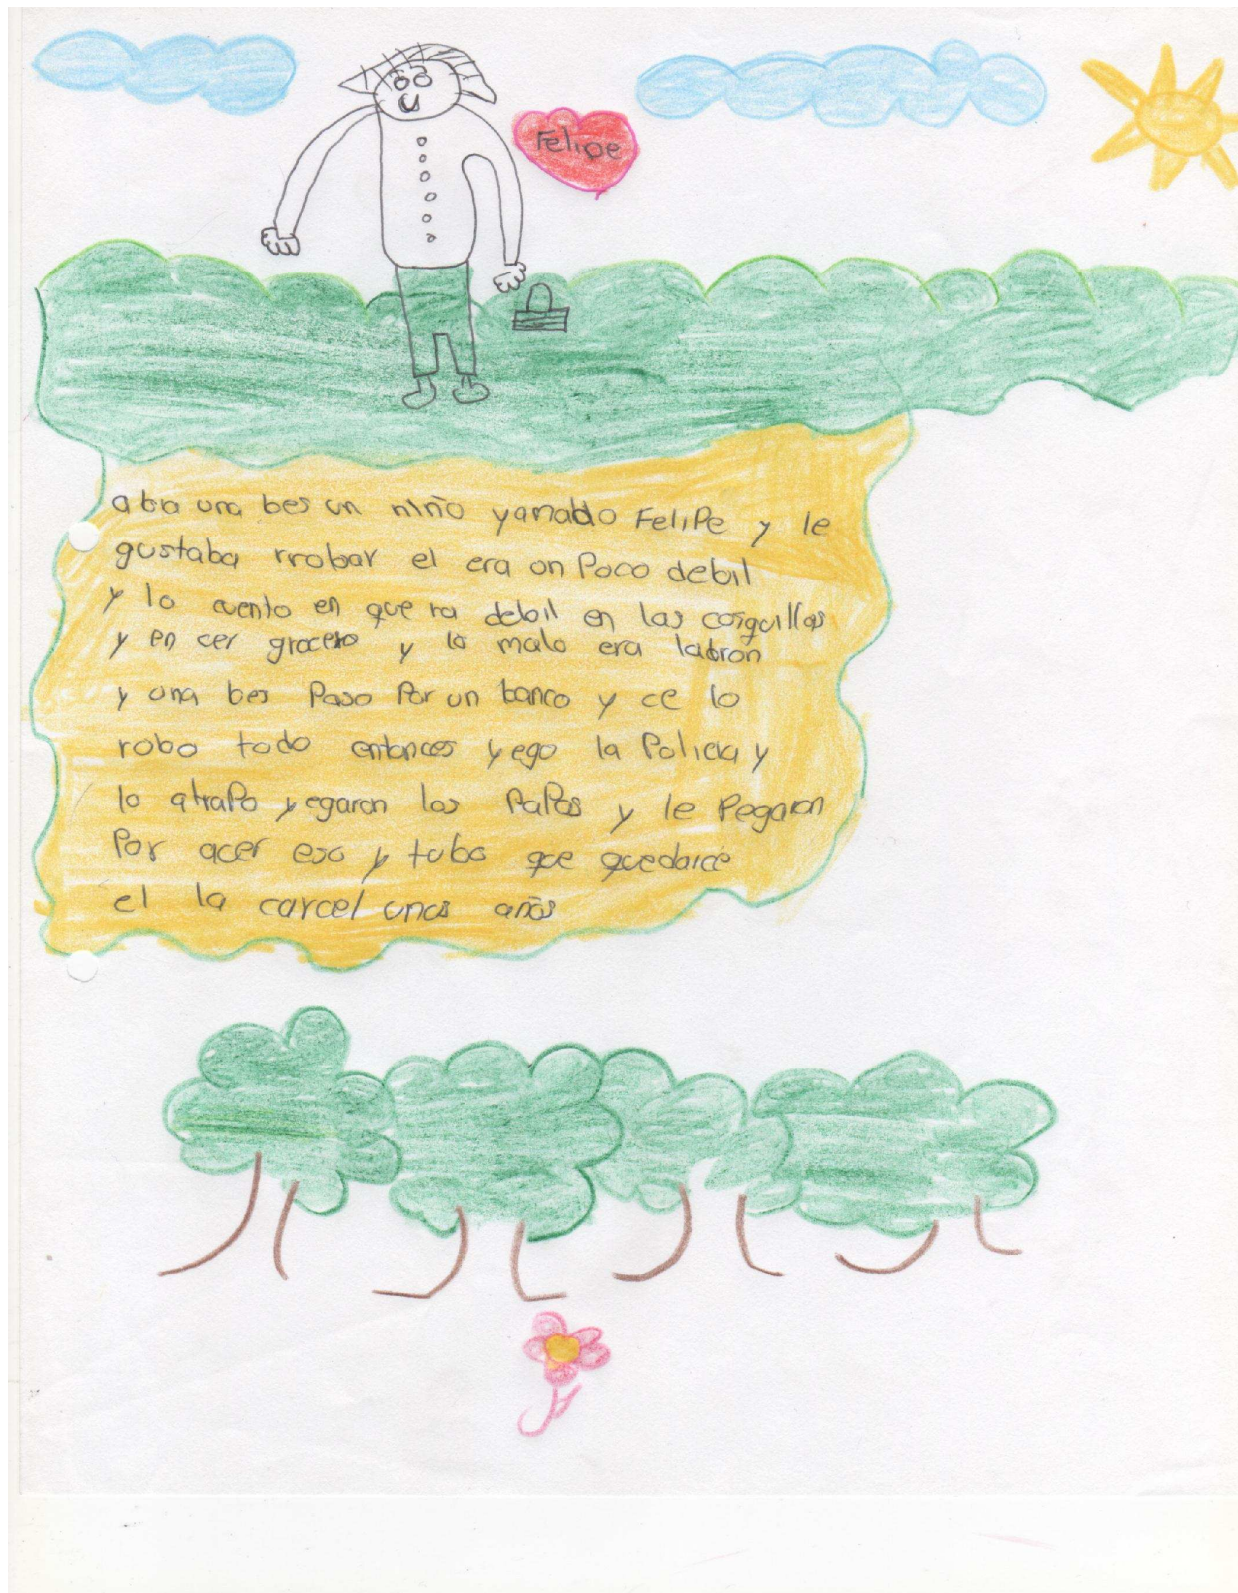 Felipe
abia una bes un niño yamado Felipe y le
gustaba rrobar el era un Poco debil
y lo cuento en que ra debil en las cosquillas
y en cer grocero y lo malo era ladron
y una bes Paso Por un banco y ce lo
robo todo entonces yego la Policia y
lo atraPo yegaron los PaPas y le Pegaron
Por acer eso y tubo que quedarce
el la carcel unos años